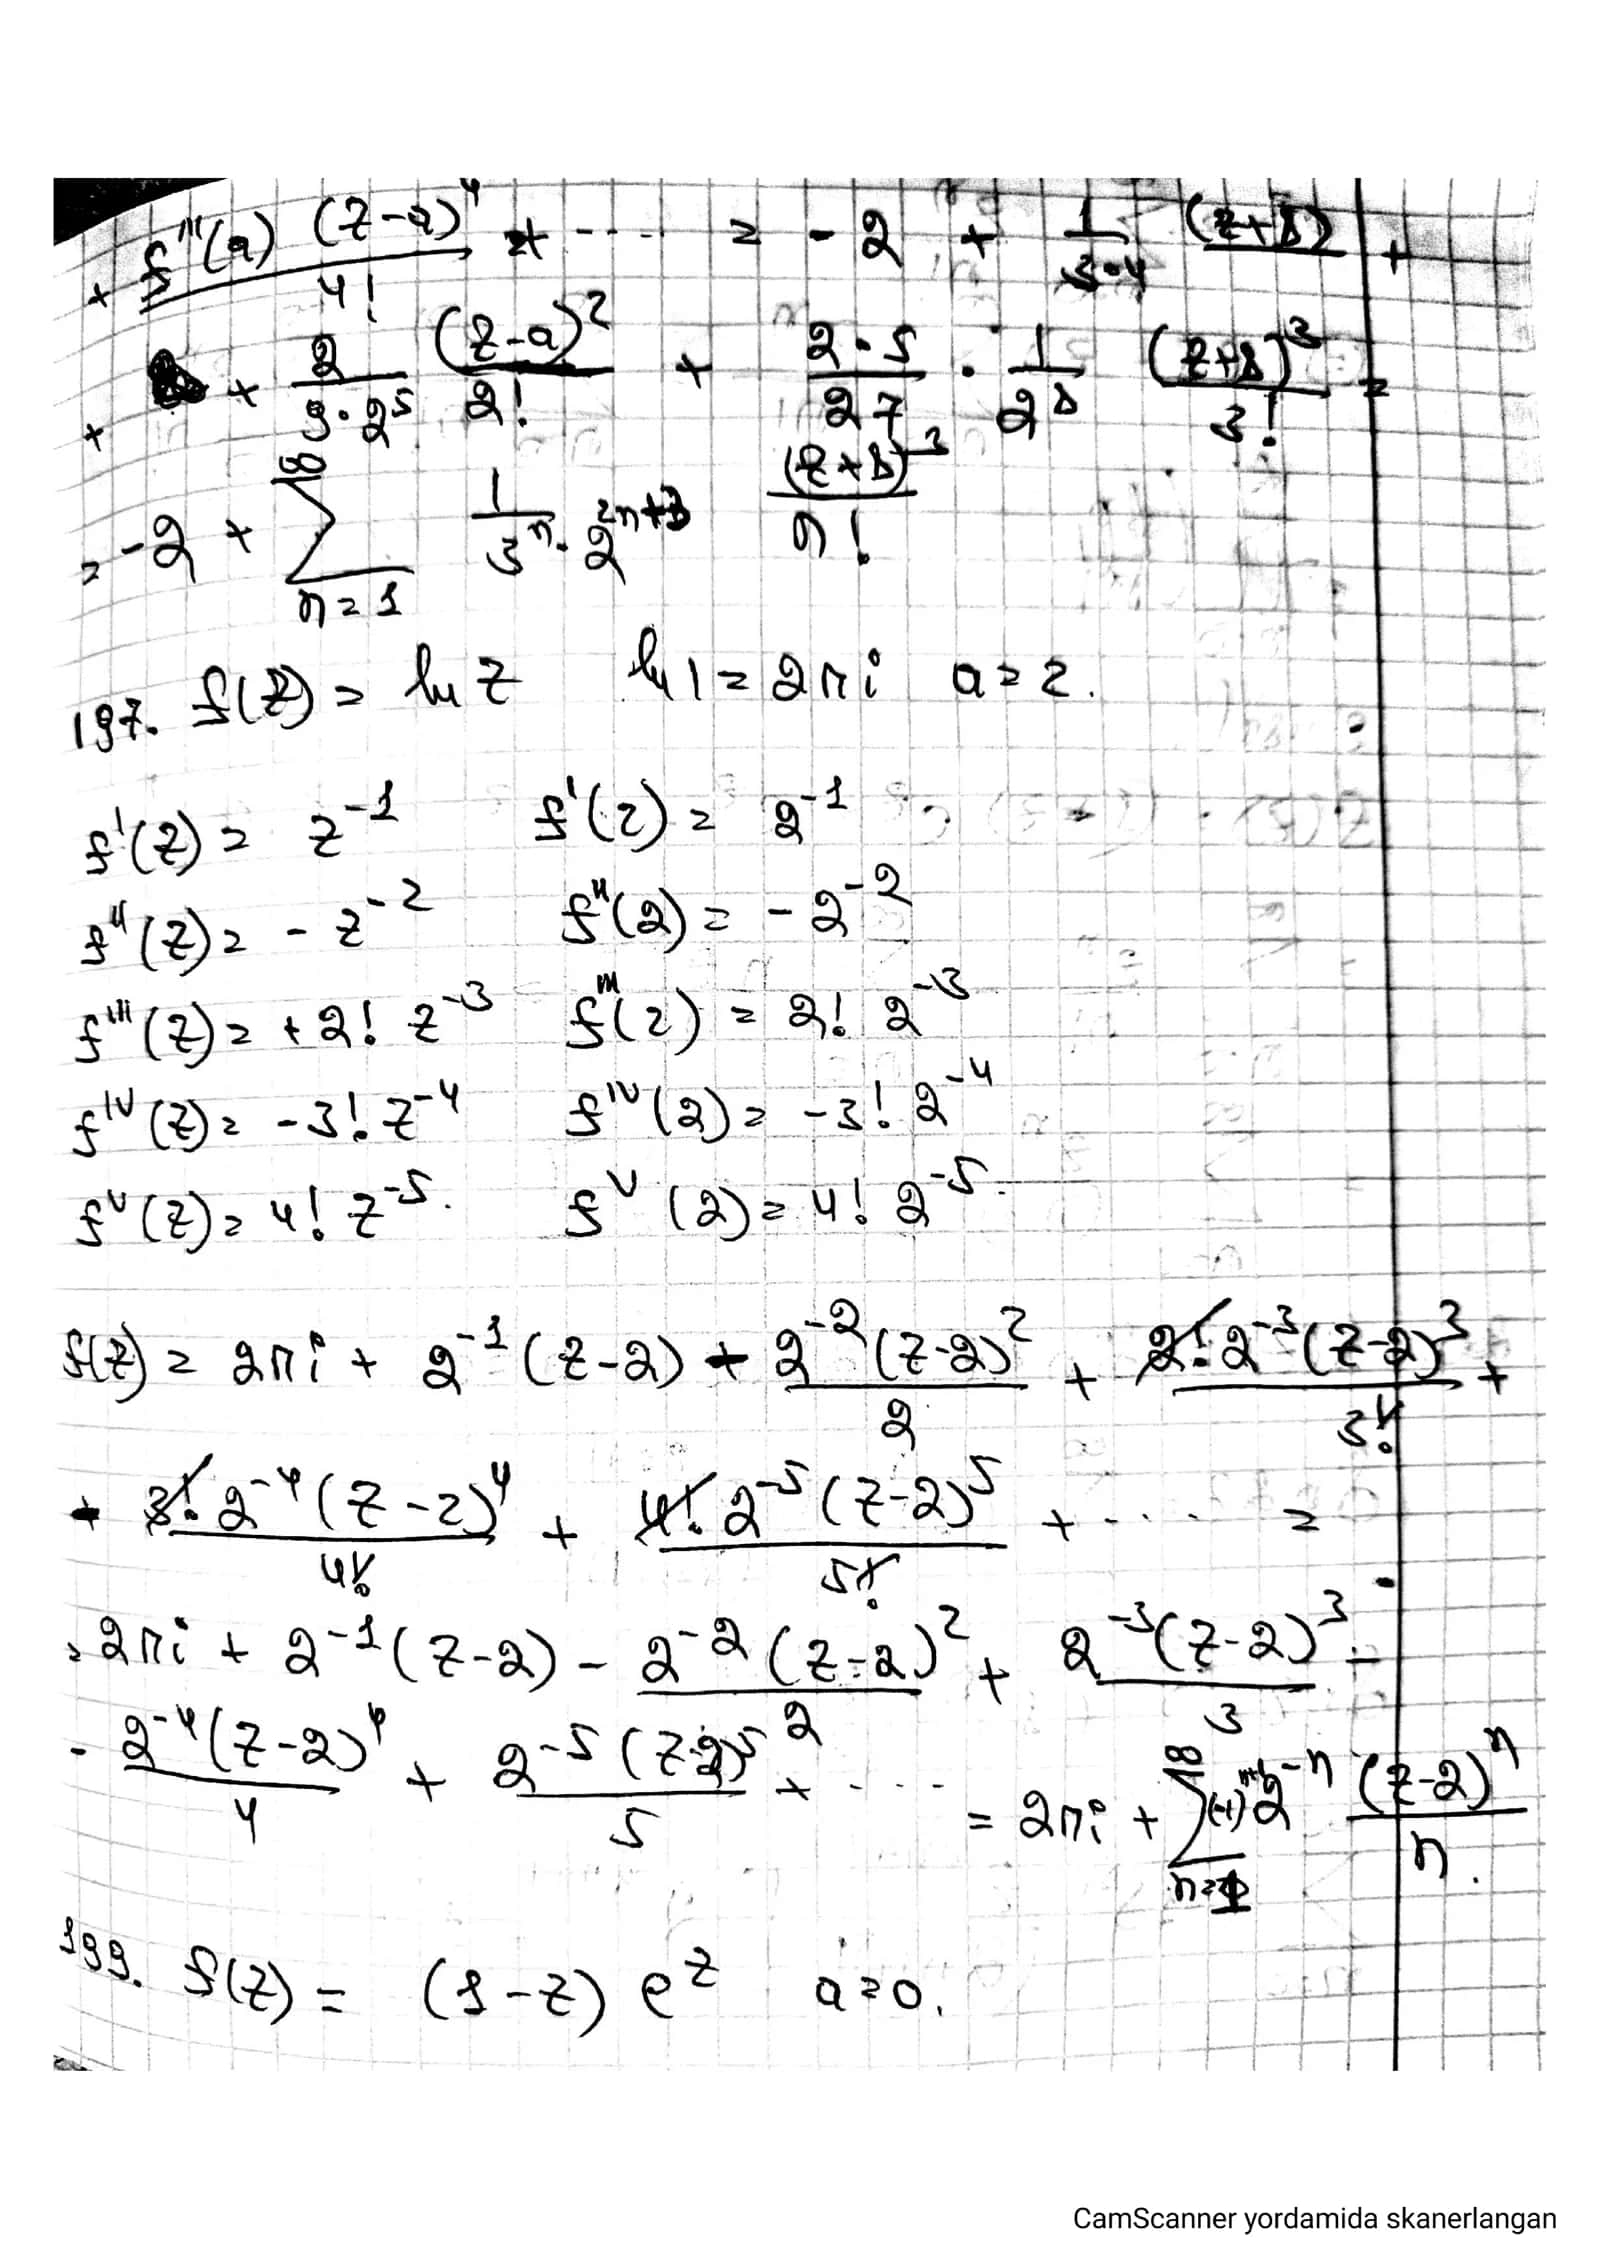 + f'''(a) (z-a)^4 / 4! + ···· = -2 + 1/(3·4) (z+8) +
+ + 2/(9·2^5) (z-a)^2/2! + 2·5/27 · 1/2^8 (z+8)^3/3! =
= -2 + ∑_{n=1}^{∞} 1/(3^n · 2^{2n+3}) (z+8)^3/n!
197. f(z) = ln z ln 1 = 2πi a = 2.
f'(z) = z^{-1} f'(2) = 2^{-1}
f''(z) = - z^{-2} f''(2) = - 2^{-2}
f'''(z) = + 2! z^{-3} f'''(2) = 2! 2^{-3}
f^{IV}(z) = -3! z^{-4} f^{IV}(2) = -3! 2^{-4}
f^{V}(z) = 4! z^{-5}. f^{V}(2) = 4! 2^{-5}.
f(z) = 2πi + 2^{-1}(z-2) - 2^{-2}(z-2)^2/2 + 2! 2^{-3}(z-2)^3/3! +
- 3! 2^{-4}(z-2)^4/4! + 4! 2^{-5}(z-2)^5/5! + ···· =
= 2πi + 2^{-1}(z-2) - 2^{-2}(z-2)^2/2 + 2^{-3}(z-2)^3/3 -
- 2^{-4}(z-2)^4/4 + 2^{-5}(z-2)^5/5 + ···· = 2πi + ∑_{n=1}^{∞} (-1)^{n+1} 2^{-n} (z-2)^n/n.
199. f(z) = (1-z) e^z a=0.
CamScanner yordamida skanerlangan